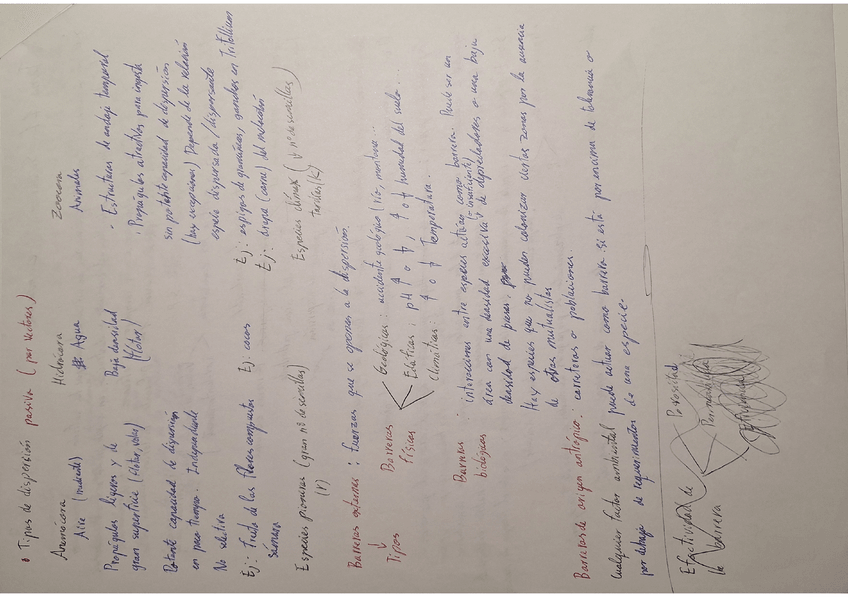 • Tipos de dispersión pasiva (por vectores)
Anemócora
Aire (mediante)
Propágulos ligeros y de
gran superficie (flotar, volar)
Potente capacidad de dispersión
en poco tiempo. Independiente
No selectiva
Ej: fruto de las flores compuestas
sámara
Especies pioneras (gran nº de semillas)
(r)
Hidrócora
Agua
Baja densidad
(flotar)
Ej: cocos
Zoócora
Animales
- Estructuras de anclaje temporal
· Propágulos atractivos para ingesta
sin potente capacidad de dispersión
(hay excepciones) Depende de la relación
especie dispersada / dispersante
Ej: espigas de gramíneas, ganchos en Trifolium
Ej: drupa (carne) del melocotón
Especies clímax (↓ nº de semillas)
tardías (K)
Barreras externas: fuerzas que se oponen a la dispersión.
↓
Tipos
Barreras
físicas
Geológicas: accidente geológico (río, montaña...
Edáficas: pH ↑ o ↓, ↑ o ↓ humedad del suelo...
Climáticas: ↑ o ↓ temperatura.
Barreras
biológicas
: interacciones entre especies actúan como barrera. Puede ser un
(o insuficiente)
área con una densidad excesiva de depredadores o una baja
densidad de presas.
Hay especies que no pueden colonizar ciertas zonas por la ausencia
de otras mutualistas
Barreras de origen antrópico: carreteras o poblaciones.
Cualquier factor ambiental puede actuar como barrera si está por encima de tolerancia o
por debajo de requerimientos de una especie.
Efectividad de
la barrera
Porosidad
Permeabilidad